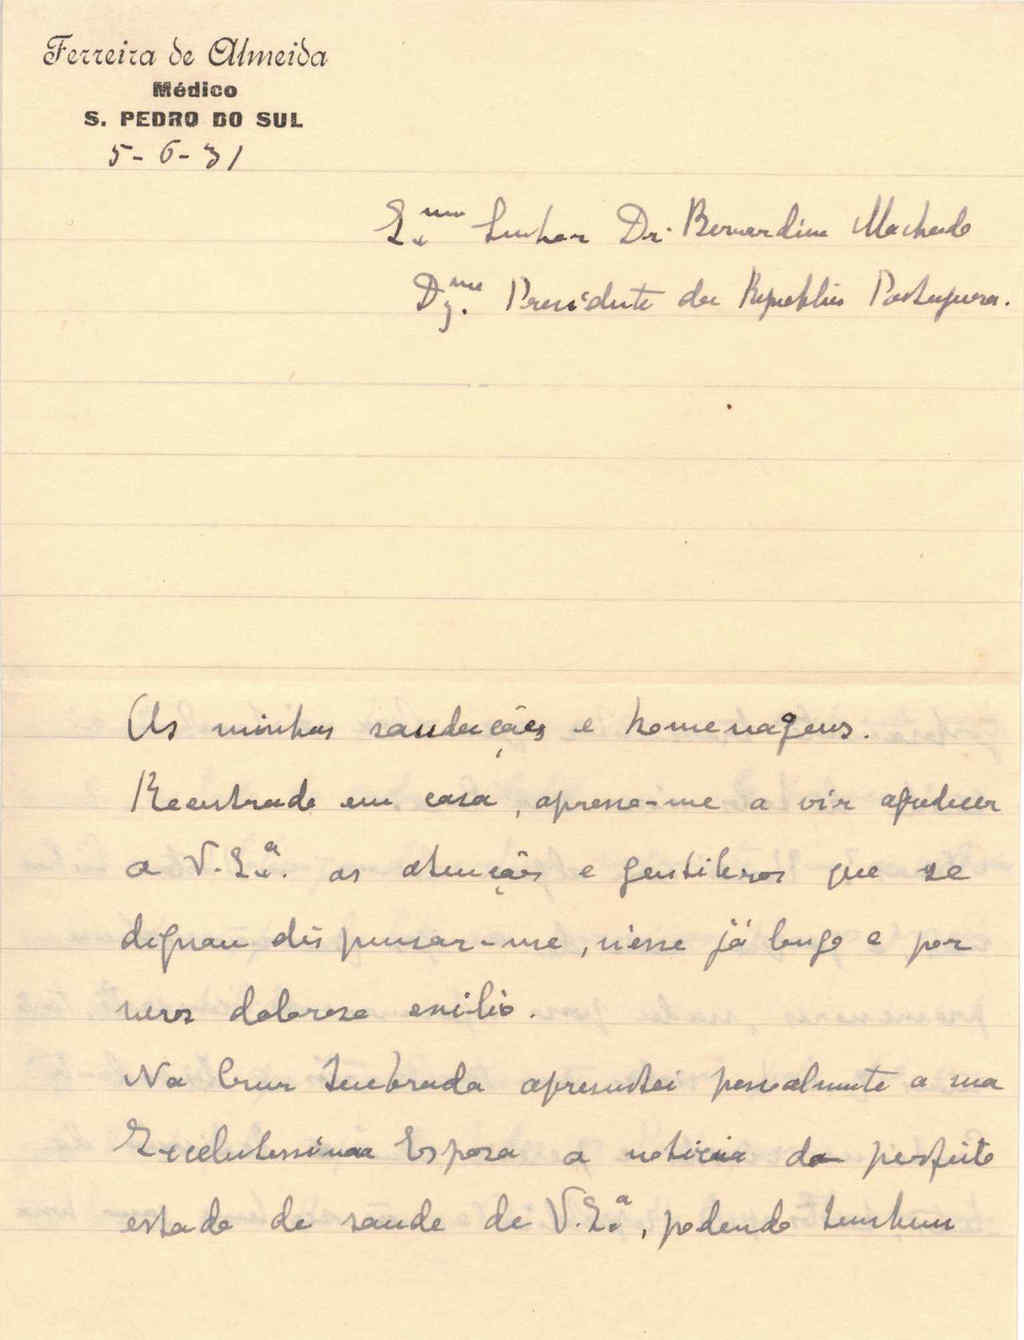 Ferreira de Almeida
Médico
S. PEDRO DO SUL
5-6-31
Ex.mo Senhor Dr. Bernardino Machado
Dg.mo Presidente da Republica Portuguesa.
As minhas saudações e homenagens.
Reentrado em casa, apresso-me a vir agradecer
a V. Ex.a as atenções e gentilezas que se
dignou dispensar-me, nesse já longo e por
vezes doloroso exilio.
Na Cruz Quebrada apresentei pessoalmente a sua
Excelentissima Esposa a noticia do perfeito
estado de saude de V. Ex.a, podendo tambem